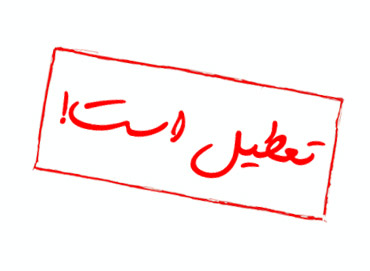 تعطیل است!